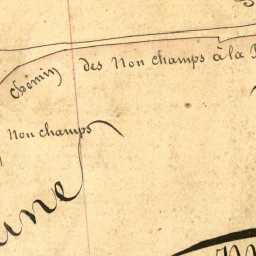 Chemin des Non champs à la
Non champs